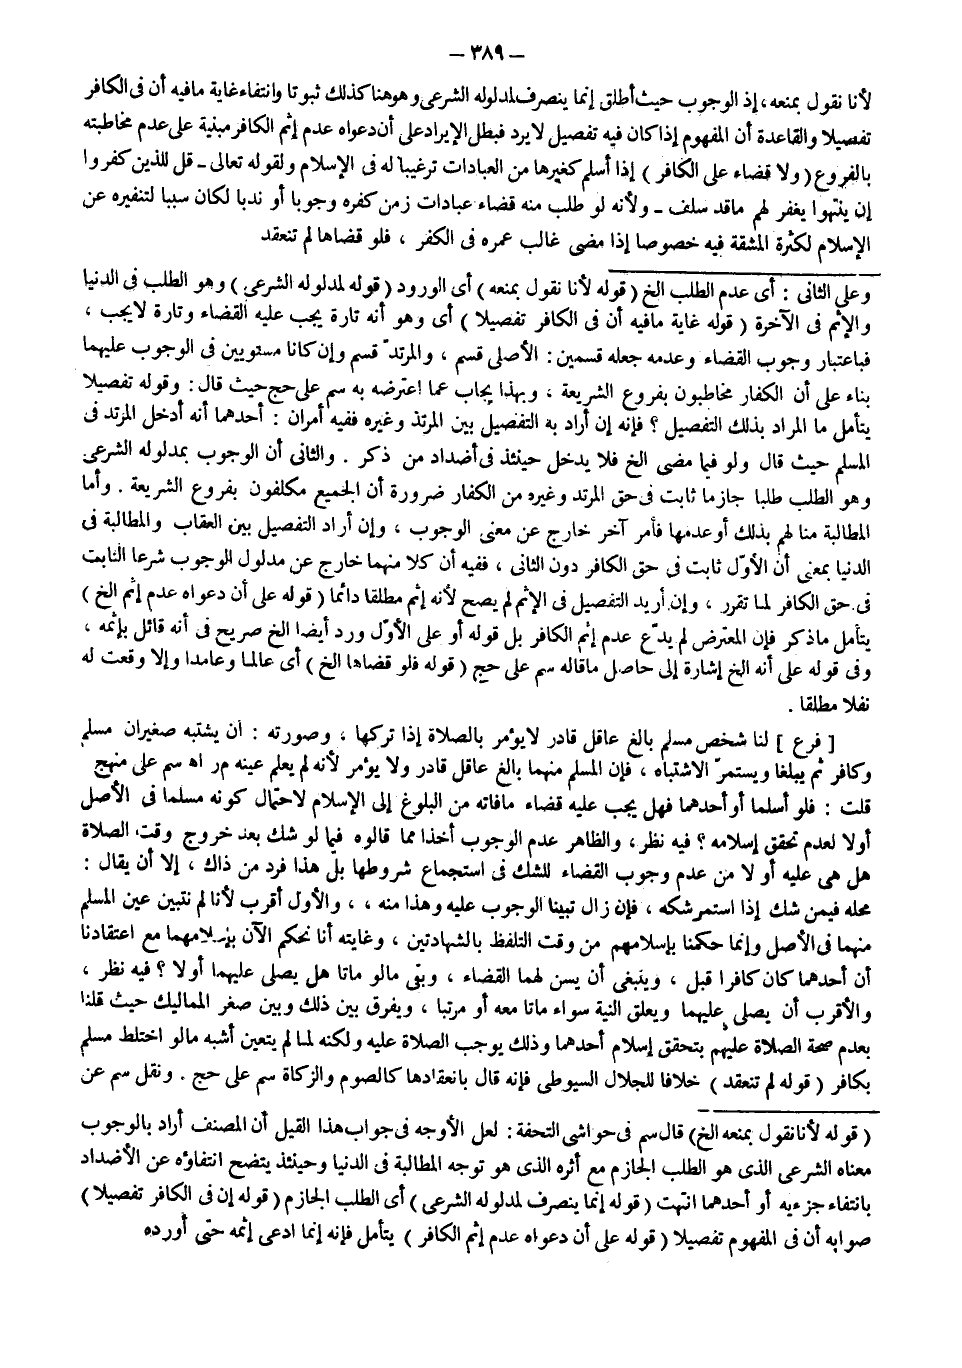 – ٣٨٩ –
لأنا نقول بمنعه ، إذ الوجوب حيث أطلق إنما ينصرف لمدلوله الشرعى وهو هنا كذلك ثبوتا وانتفاء غاية مافيه أن فى الكافر
تفصيلا والقاعدة أن المفهوم إذا كان فيه تفصيل لايرد فبطل الإيراد على أن دعواه عدم إثم الكافر مبنية على عدم مخاطبته
بالفروع ( ولا قضاء على الكافر ) إذا أسلم كغيرها من العبادات ترغيبا له فى الإسلام ولقوله تعالى ـ قل للذين كفروا
إن ينتهوا يغفر لهم ماقد سلف ـ ولأنه لو طلب منه قضاء عبادات زمن كفره وجوبا أو ندبا لكان سببا لتنفيره عن
الإسلام لكثرة المشقة فيه خصوصا إذا مضى غالب عمره فى الكفر ، فلو قضاها لم تنعقد
وعلى الثانى : أى عدم الطلب الخ ( قوله لأنا نقول بمنعه ) أى الورود ( قوله لمدلوله الشرعى ) وهو الطلب فى الدنيا
والإثم فى الآخرة ( قوله غاية مافيه أن فى الكافر تفصيلا ) أى وهو أنه تارة يجب عليه القضاء وتارة لايجب ،
فباعتبار وجوب القضاء وعدمه جعله قسمين : الأصلى قسم ، والمرتدّ قسم وإن كانا مستويين فى الوجوب عليهما
بناء على أن الكفار مخاطبون بفروع الشريعة ، وبهذا يجاب عما اعترضه به سم على حج حيث قال : وقوله تفصيلا
يتأمل ما المراد بذلك التفصيل ؟ فإنه إن أراد به التفصيل بين المرتدّ وغيره ففيه أمران : أحدهما أنه أدخل المرتد فى
المسلم حيث قال ولو فيما مضى الخ فلا يدخل حينئذ فى أضداد من ذكر . والثانى أن الوجوب بمدلوله الشرعى
وهو الطلب طلبا جازما ثابت فى حق المرتد وغيره من الكفار ضرورة أن الجميع مكلفون بفروع الشريعة . وأما
المطالبة منا لهم بذلك أو عدمها فأمر آخر خارج عن معنى الوجوب ، وإن أراد التفصيل بين العقاب والمطالبة فى
الدنيا بمعنى أن الأوّل ثابت فى حق الكافر دون الثانى ، ففيه أن كلا منهما خارج عن مدلول الوجوب شرعا الثابت
فى حق الكافر لما تقرر ، وإن أريد التفصيل فى الإثم لم يصح لأنه إثم مطلقا دائما ( قوله على أن دعواه عدم إثم الخ )
يتأمل ماذكر فإن المعترض لم يدّع عدم إثم الكافر بل قوله أو على الأوّل ورد أيضا الخ صريح فى أنه قائل بإثمه ،
وفى قوله على أنه الخ إشارة إلى حاصل ماقاله سم على حج ( قوله فلو قضاها الخ ) أى عالما وعامدا وإلا وقعت له
نفلا مطلقا .
[ فرع ] لنا شخص مسلم بالغ عاقل قادر لايؤمر بالصلاة إذا تركها ، وصورته : أن يشتبه صغيران مسلم
وكافر ثم يبلغا ويستمرّ الاشتباه ، فإن المسلم منهما بالغ عاقل قادر ولا يؤمر لأنه لم يعلم عينه م ر اه سم على منهج
قلت : فلو أسلما أو أحدهما فهل يجب عليه قضاء مافاته من البلوغ إلى الإسلام لاحتمال كونه مسلما فى الأصل
أولا لعدم تحقق إسلامه ؟ فيه نظر ، والظاهر عدم الوجوب أخذا مما قالوه فيما لو شك بعد خروج وقت الصلاة
هل هى عليه أو لا من عدم وجوب القضاء للشك فى استجماع شروطها بل هذا فرد من ذاك ، إلا أن يقال :
محله فيمن شك إذا استمر شكه ، فإن زال تبينا الوجوب عليه وهذا منه ، ، والأول أقرب لأنا لم نتبين عين المسلم
منهما فى الأصل وإنما حكمنا بإسلامهم من وقت التلفظ بالشهادتين ، وغايته أنا نحكم الآن بإسلامهما مع اعتقادنا
أن أحدهما كان كافرا قبل ، وينبغى أن يسن لهما القضاء ، وبقى مالو ماتا هل يصلى عليهما أولا ؟ فيه نظر ،
والأقرب أن يصلى عليهما ويعلق النية سواء ماتا معه أو مرتبا ، ويفرق بين ذلك وبين صغر المماليك حيث قلنا
بعدم صحة الصلاة عليهم بتحقق إسلام أحدهما وذلك يوجب الصلاة عليه ولكنه لما لم يتعين أشبه مالو اختلط مسلم
بكافر ( قوله لم تنعقد ) خلافا للجلال السيوطى فإنه قال بانعقادها كالصوم والزكاة سم على حج . ونقل سم عن
( قوله لأنا نقول بمنعه الخ ) قال سم فى حواشى التحفة : لعل الأوجه فى جواب هذا القيل أن المصنف أراد بالوجوب
معناه الشرعى الذى هو الطلب الجازم مع أثره الذى هو توجه المطالبة فى الدنيا وحينئذ يتضح انتفاؤه عن الأضداد
بانتفاء جزءيه أو أحدهما انتهت ( قوله إنما ينصرف لمدلوله الشرعى ) أى الطلب الجازم ( قوله إن فى الكافر تفصيلا )
صوابه أن فى المفهوم تفصيلا ( قوله على أن دعواه عدم إثم الكافر ) يتأمل فإنه إنما ادعى إثمه حتى أورده